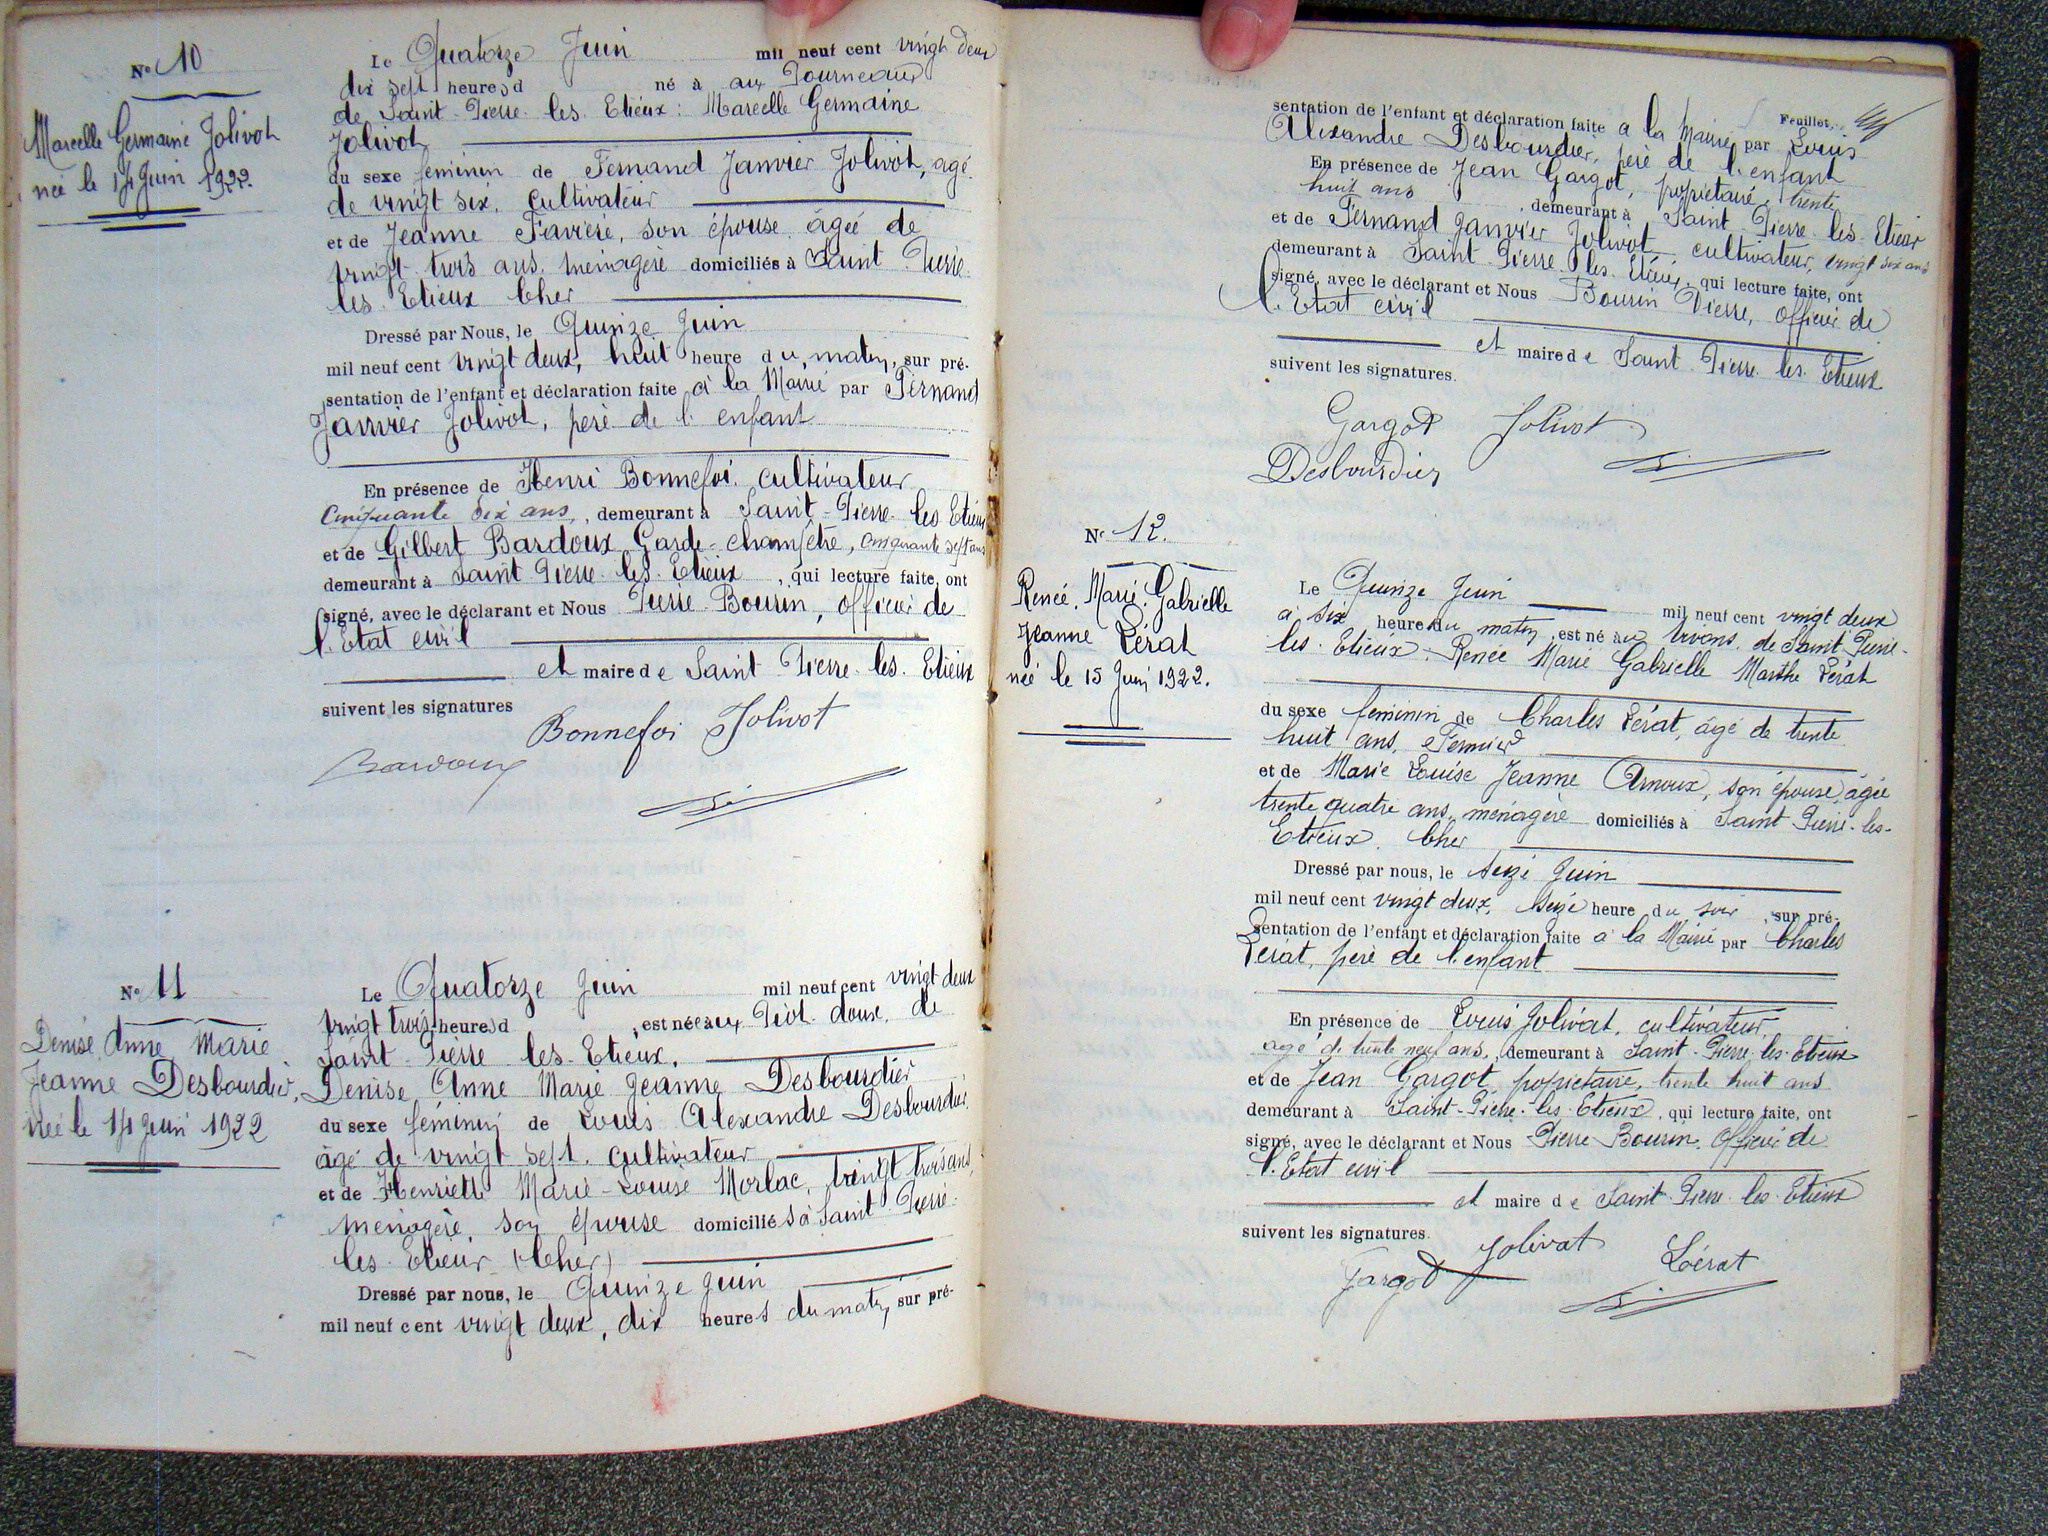 N° 10
Marcelle Germaine Jolivot
née le 14 Juin 1922.
Le Quatorze Juin mil neuf cent vingt deux
dix sept heures d né à aux Journeaux
de Saint-Pierre-les-Etieux: Marcelle Germaine
Jolivot
du sexe féminin de Fernand Janvier Jolivot, agé
de vingt six, cultivateur
et de Jeanne Favière, son épouse âgée de
vingt trois ans ménagère domiciliés à Saint-Pierre
les Etieux Cher
Dressé par Nous, le Quinze Juin
mil neuf cent vingt deux, huit heure du matin, sur pré-
sentation de l'enfant et déclaration faite à la Mairie par Fernand
Janvier Jolivot, père de l'enfant
En présence de Henri Bonnefoi, cultivateur
Cinquante six ans, demeurant à Saint-Pierre-les Etieux
et de Gilbert Bardoux Garde-champêtre, cinquante sept ans
demeurant à Saint Pierre-les-Etieux, qui lecture faite, ont
signé, avec le déclarant et Nous Pierre Bourin, officier de
l'Etat civil
et maire de Saint-Pierre-les-Etieux
suivent les signatures
Bonnefoi Jolivot
Bardoux
N° 11
Denise Anne Marie
Jeanne Desbourdier,
née le 14 Juin 1922
Le Quatorze Juin mil neuf cent vingt deux
vingt trois heures d, est né aux Piot-doux, de
Saint-Pierre les-Etieux,
Denise Anne Marie Jeanne Desbourdier
du sexe féminin de Louis Alexandre Desbourdier
âgé de vingt sept, cultivateur
et de Henriette Marie-Louise Morlac, vingt trois ans,
ménagère, son épouse domiciliés à Saint Pierre-
les-Etieux (Cher)
Dressé par nous, le Quinze Juin
mil neuf cent vingt deux, dix heures du matin, sur pré-
Feuillet,
sentation de l'enfant et déclaration faite à la Mairie par Louis
Alexandre Desbourdier, père de l'enfant
En présence de Jean Gargot, propriétaire, trente
huit ans, demeurant à Saint-Pierre-les-Etieux
et de Fernand Janvier Jolivot, cultivateur, vingt six ans
demeurant à Saint-Pierre-les-Etieux, qui lecture faite, ont
signé, avec le déclarant et Nous Bourin Pierre, officier de
l'Etat civil
et maire de Saint-Pierre-les-Etieux
suivent les signatures.
Gargot Jolivot
Desbourdier
N° 12.
Renée, Marie, Gabrielle
Jeanne Lérat
née le 15 Juin 1922.
Le Quinze Juin mil neuf cent vingt deux
à six heure du matin, est né au de Saint-Pierre-
les-Etieux, Renée Marie Gabrielle Marthe Lérat
du sexe féminin de Charles Lérat, âgé de trente
huit ans, Fermier
et de Marie Louise Jeanne Arnoux, son épouse, âgée
trente quatre ans, ménagère domiciliés à Saint Pierre-les-
Etieux, Cher
Dressé par nous, le seize Juin
mil neuf cent vingt deux, seize heure du soir, sur pré-
sentation de l'enfant et déclaration faite à la Mairie par Charles
Lérat, père de l'enfant
En présence de Louis Jolivat, cultivateur,
agé de trente neuf ans, demeurant à Saint-Pierre-les-Etieux
et de Jean Gargot propriétaire, trente huit ans
demeurant à Saint-Pierre-les-Etieux, qui lecture faite, ont
signé, avec le déclarant et Nous Pierre Bourin, Officier de
l'Etat civil
et maire de Saint-Pierre-les-Etieux
suivent les signatures.
Jolivat Lérat
Gargot